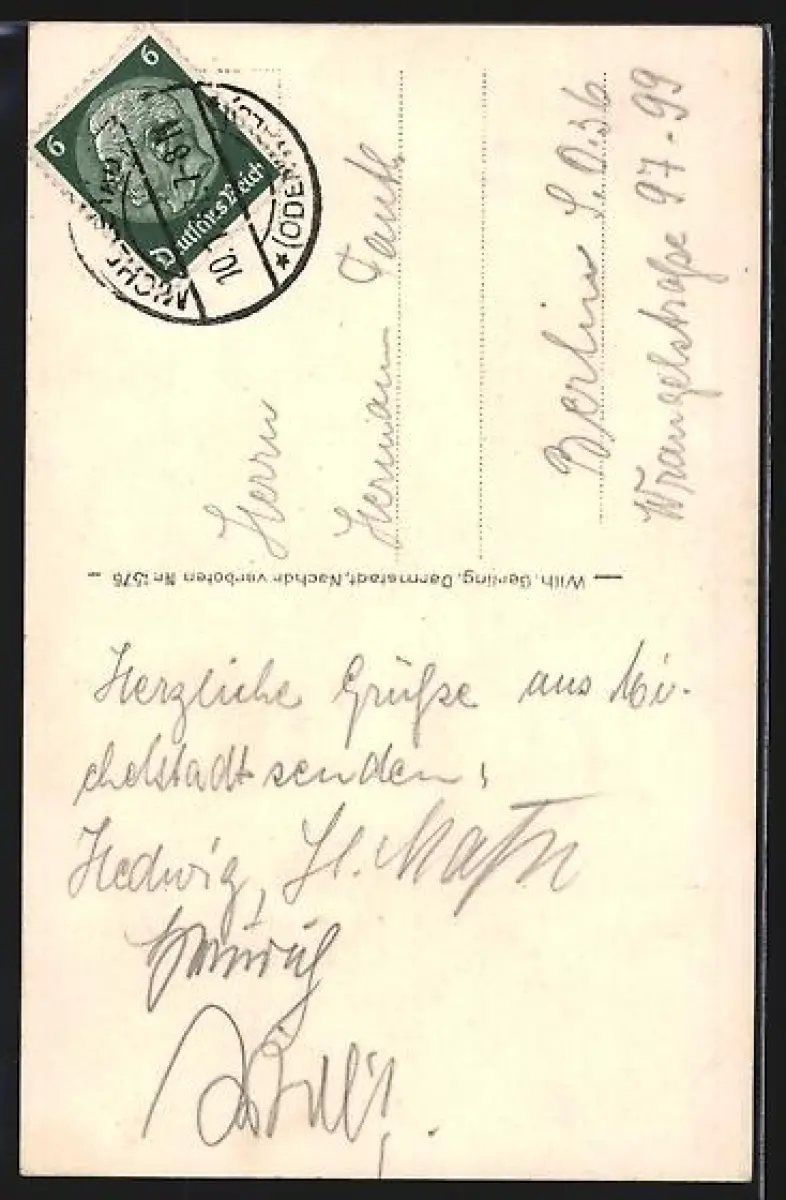 6
6
Deutsches Reich
(ODENWALD)
10.
Herrn
Herman Fauth
Berlin S.O.36
Wrangelstraße 97-99
— Wilh. Gerling, Darmstadt, Nachdr. verboten Nr. 1576 –
Herzliche Grüße aus Mi-
chelstadt senden:
Hedwig, H.
Heinrich